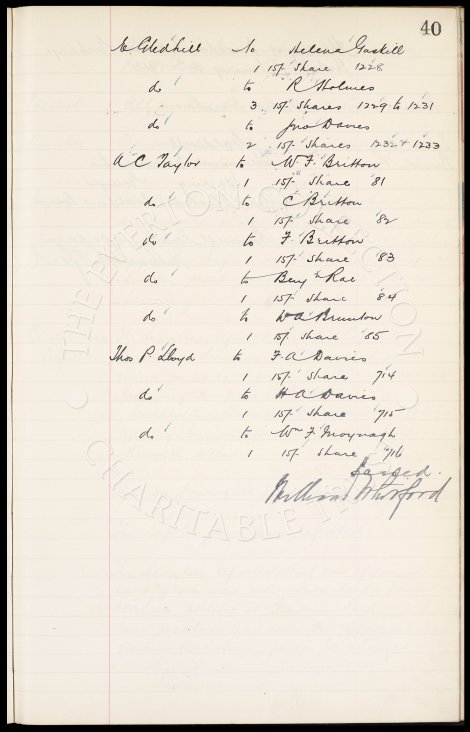 40
E Gledhill to Helena Gaskill
1 15/- Share 1228
do to R Holmes
3 15/- Shares 1229 to 1231
do to Jno Davies
2 15/- Shares 1232 & 1233
A C Taylor to W. F. Britton
1 15/- Share 81
do to C Britton
1 15/- Share 82
do to F. Britton
1 15/- Share 83
do to Benj n Rae
1 15/- Share 84
do to W A Brunton
1 15/- Share 85
Thos P Lloyd to F. A Davies
1 15/- Share 714
do to H A Davies
1 15/- Share 715
do to Wm F Moynagh
1 15/- Share 716
Passed.
William
THE EVERTON COLLECTION
CHARITABLE